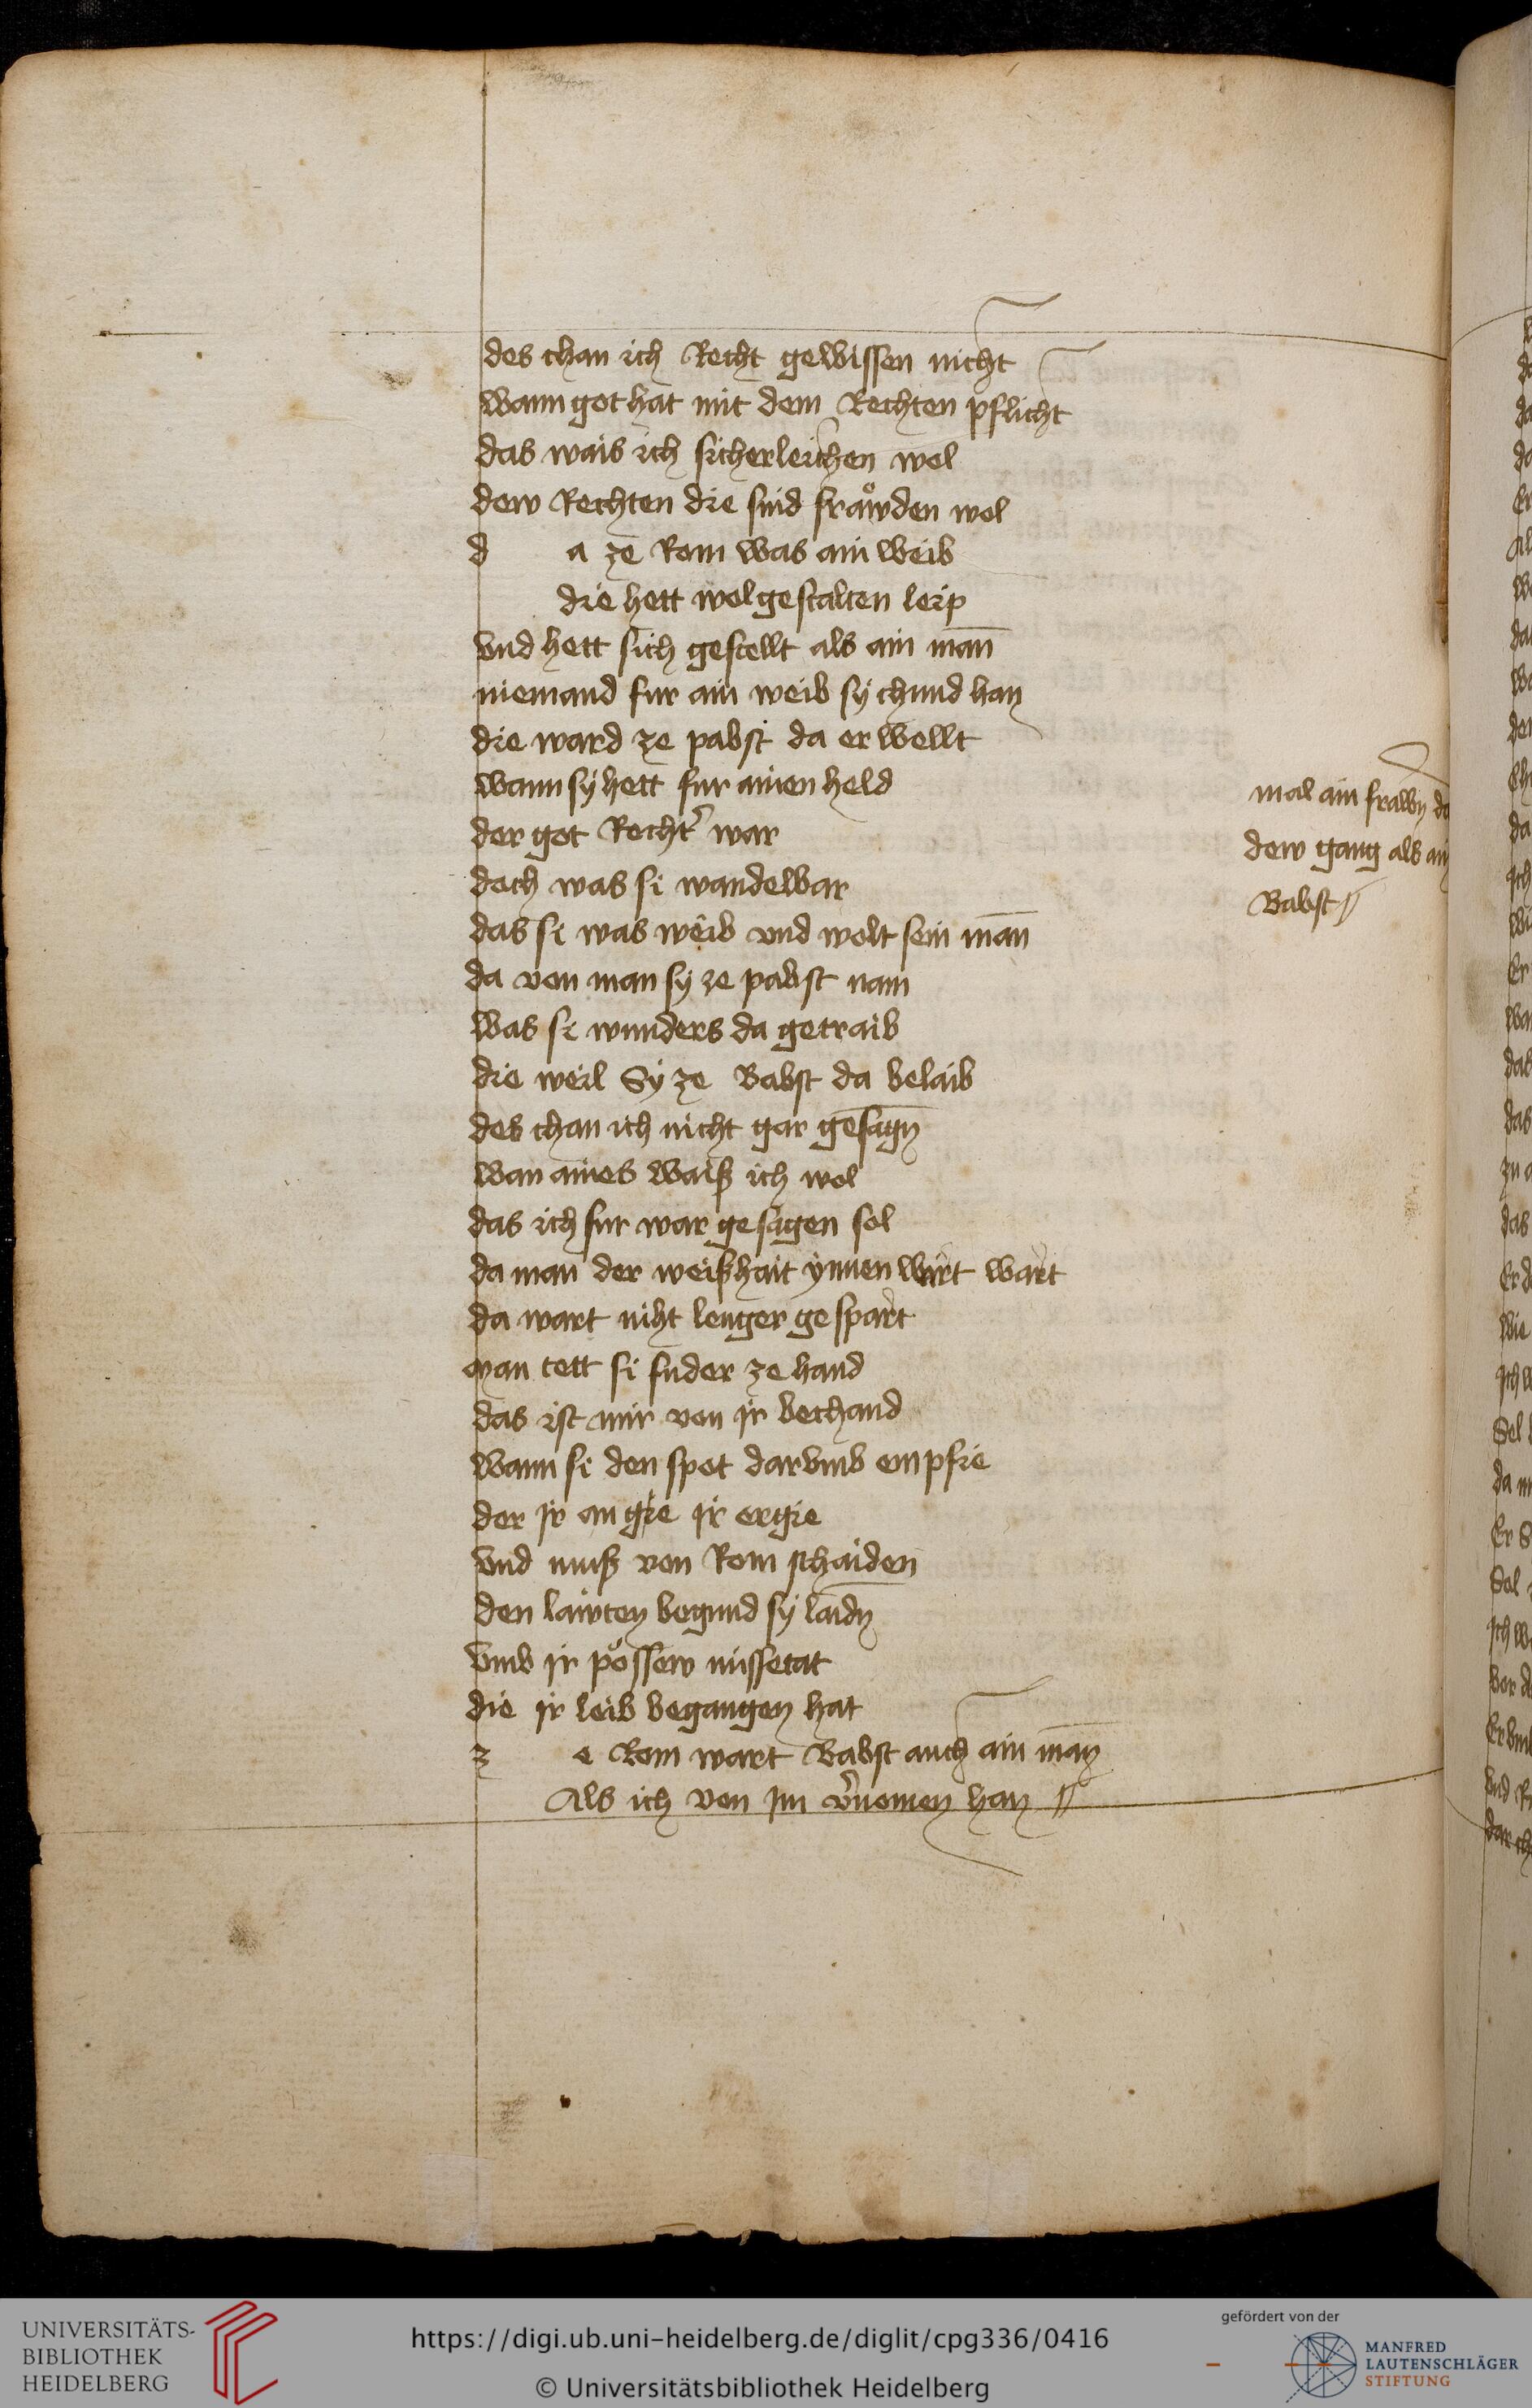 des chan ich Recht gewissen nicht
Wann got hat mit dem Rechten pflicht
das wais ich sicherleichen wol
dew Rechten die sind fraẘden vol
d a ze Rom was ain weib
die hett wolgestalten leip
Vnd hett sich gestellt als ain man̄
niemand fur ain weib sy chund han
die ward ze pabst da er wellt
Wann sy hett fur ainen held
der got Recht͛ war
doch was si wandelbar
das si was weib vnd wolt sein man̄
da von man sy ze pabst nam
Was si wunders da getraib
die weil Sy ze Babst da belaib
des chan ich nicht gar gesagn̄
Wan aines waiß ich wol
das ich fur war gesagen sol
da man der weißhait ynnen wirt wart
da wart niht lenger gespart
Man tett si suder ze hand
das ist mir von ir bechand
Wann si den spot darvmb empfie
der ir an gie ir ergie
Vnd muß von Rom schaiden
den lawten begund sy laidn̄
Vmb ir possew missetat
die ir leib begangen hat
z e Rom wart Babst auch ain man̄
Als ich von im v͛nomen han
mal ain frawn da
dew gang als ain
Babst
UNIVERSITÄTS-
BIBLIOTHEK
HEIDELBERG
https://digi.ub.uni-heidelberg.de/diglit/cpg336/0416
© Universitätsbibliothek Heidelberg
gefördert von der
MANFRED
LAUTENSCHLÄGER
STIFTUNG